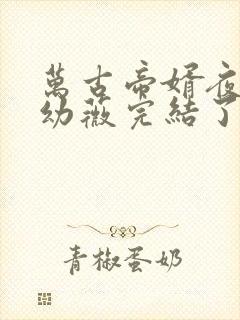 萬古帝婿夜
幼薇完結了
青椒蛋奶